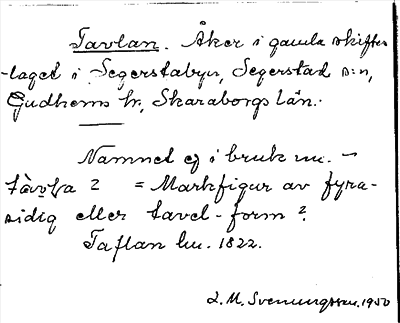 Tavlan. Åker i gamla skiftes-
-laget i Segerstabyn, Segerstad s:n,
Gudhems hr, Skaraborgs län.
Namnet ej i bruk nu. -
? = Markfigur av fyra-
sidig eller tavel-form?
Taflan hu. 1822.
L. M. Svenungsson. 1950